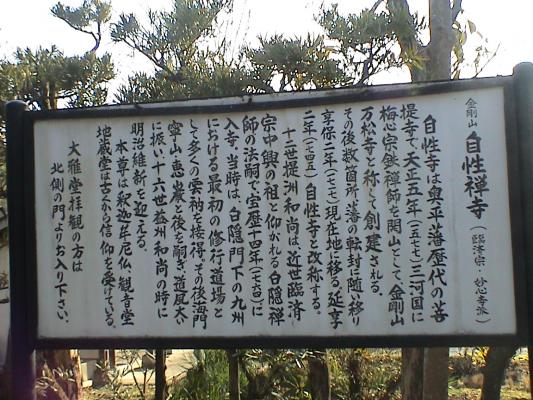 金剛山 自性禅寺 (臨済宗・妙心寺派)
自性寺は奥平藩歴代の菩
提寺で、天正五年(一五七七)三河国に
梅心宗鉄禅師を開山として、金剛山
万松寺と称して創建される。
その後数箇所、藩の転封に随い移り
享保二年(一七一七)現在地に移る。延享
二年(一七四五)自性寺と改称する。
十二世提洲和尚は、近世臨済
宗中興の祖と仰がれる白隠禅
師の法嗣で、宝暦十四年(一七六四)に
入寺、当時は、白隠門下の九州
における最初の修行道場と
して多くの雲衲を接得、その後海門
霊山、恵巌と後を嗣ぎ、道風大い
に振い十六世益州和尚の時に
明治維新を迎える。
本尊は釈迦牟尼仏、観音堂
地蔵堂は古くから信仰を受けている。
大雅堂拝観の方は
北側の門よりお入り下さい。